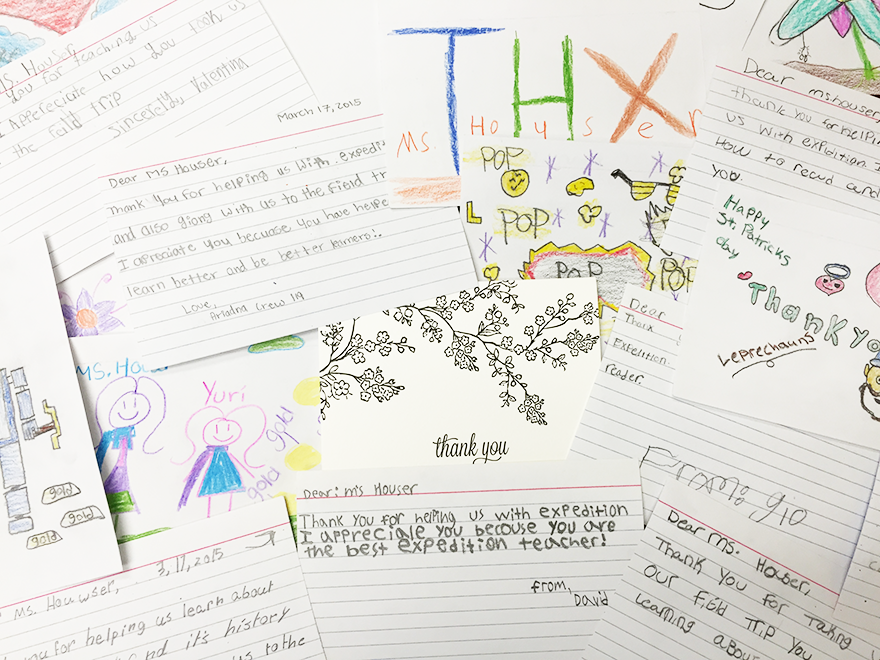 MS. Houser
you for teaching us
I Appreciate how you took us
the feild trip
Sincerely, Valentina
March 17, 2015
Dear Ms. Houser,
Thank you for helping us with expedi
and also giong with us to the field tr
I appriciate you becuase you have helpe
learn better and be better learners!.
Love,
Ariadna Crew 119
THX
Ms. Houser
POP
POP
POP
POP
Dear ms houser,
thank you for helping
us with expedition. I
How to read and
you.
Happy
St. Patricks
day
Thank Yo
Leprechauns
Dear
Thank
Expedition
reader.
From: gio
MS. Hous
Yuri
gold
gold
gold
gold
gold
gold
thank you
Dear: ms Houser
Thank you for helping us with expedition
I appreciale you becouse you are
the best expedition teacher!
from,
David
3, 17, 2015
Ms. Houwser,
you for helping us learn about
and it's history
us to the
Dear ms. Houser,
Thank you for taking
our field trip you
learning about